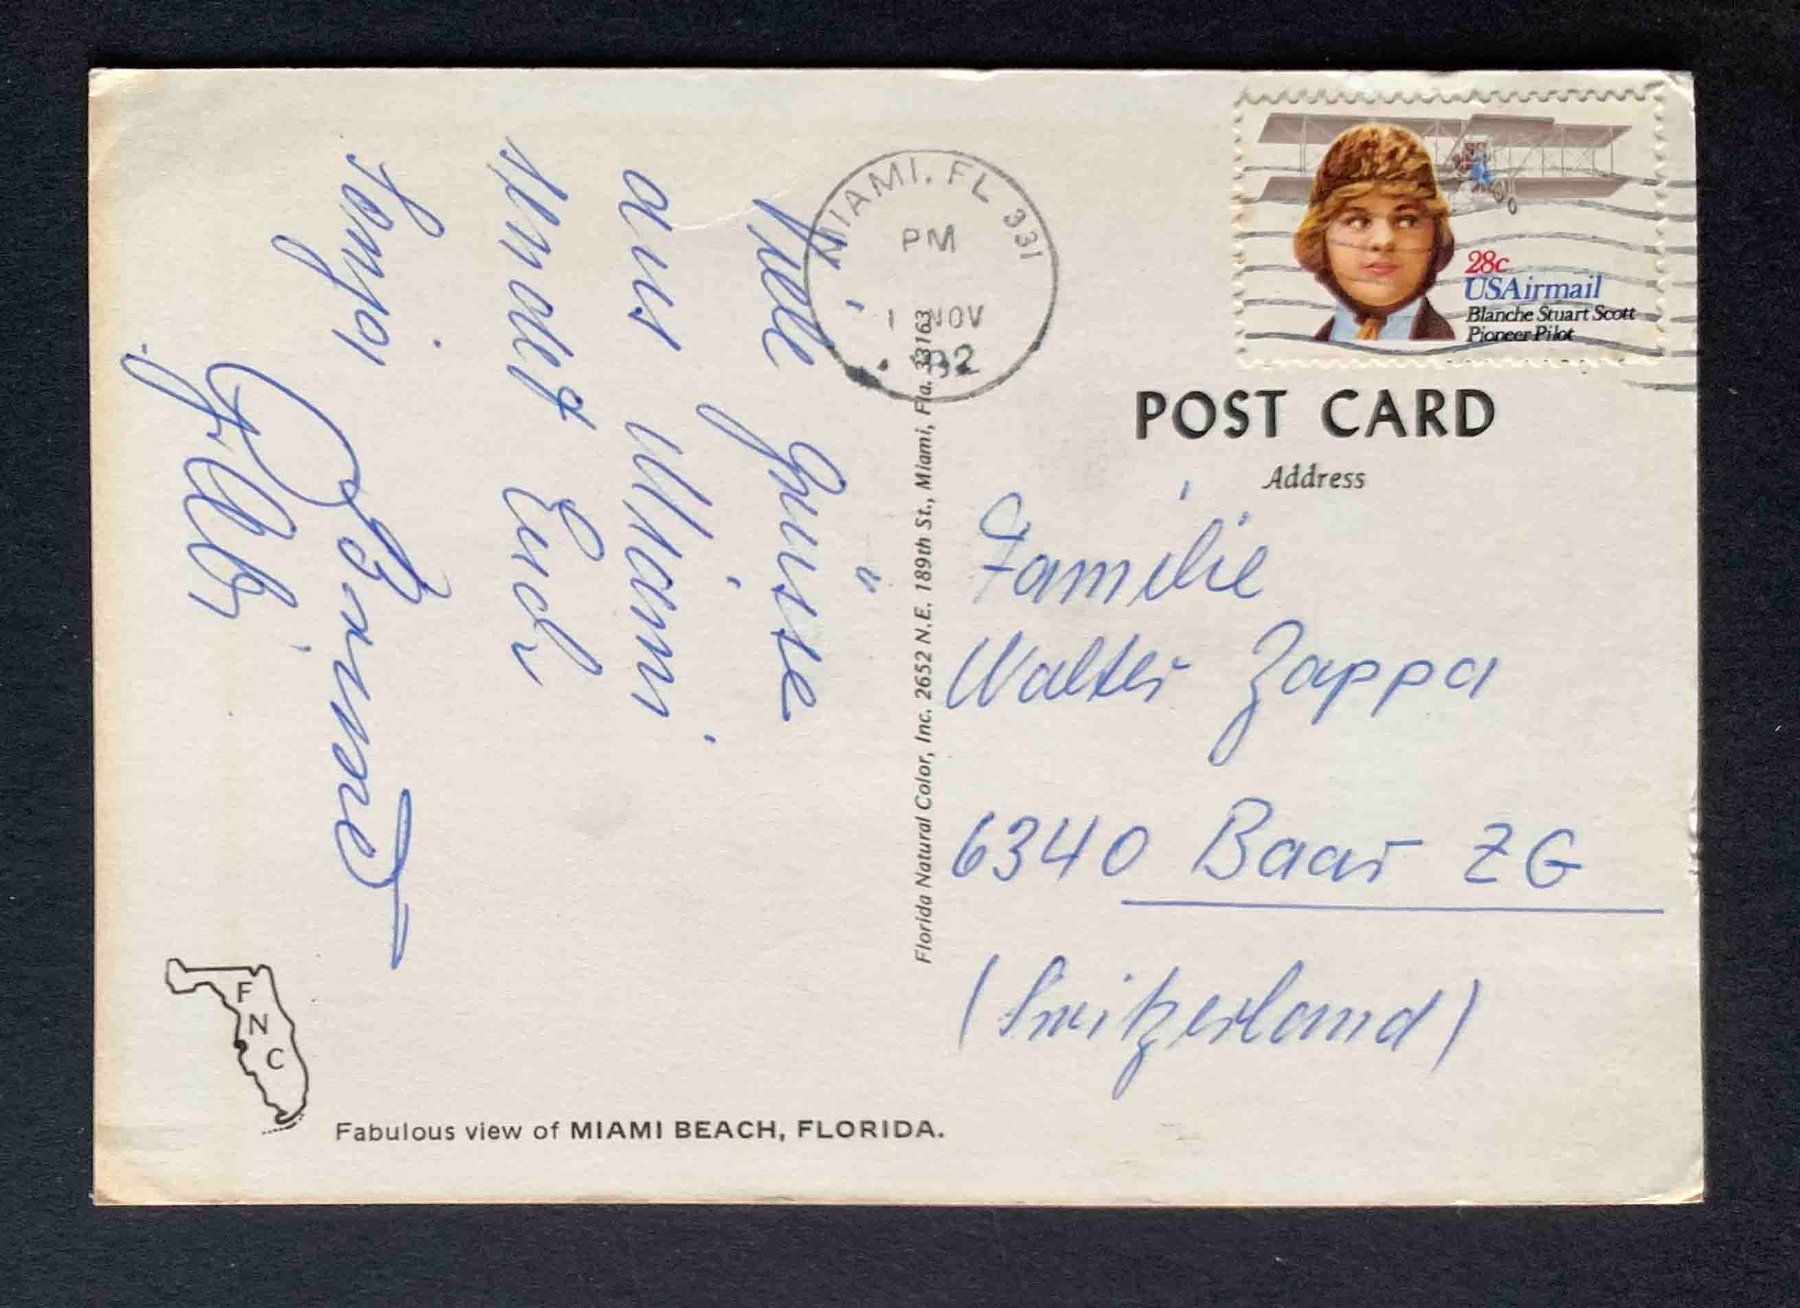 Viele Grüsse
aus Miami
sendet Euch
Sonja
MIAMI, FL 331
PM
1 NOV
28c
USAirmail
Blanche Stuart Scott
Pioneer Pilot
POST CARD
Address
Familie
Walter Zappa
6340 Baar ZG
(Switzerland)
Florida Natural Color, Inc. 2652 N.E. 189th St., Miami, Fla. 33163
F
N
C
Fabulous view of MIAMI BEACH, FLORIDA.